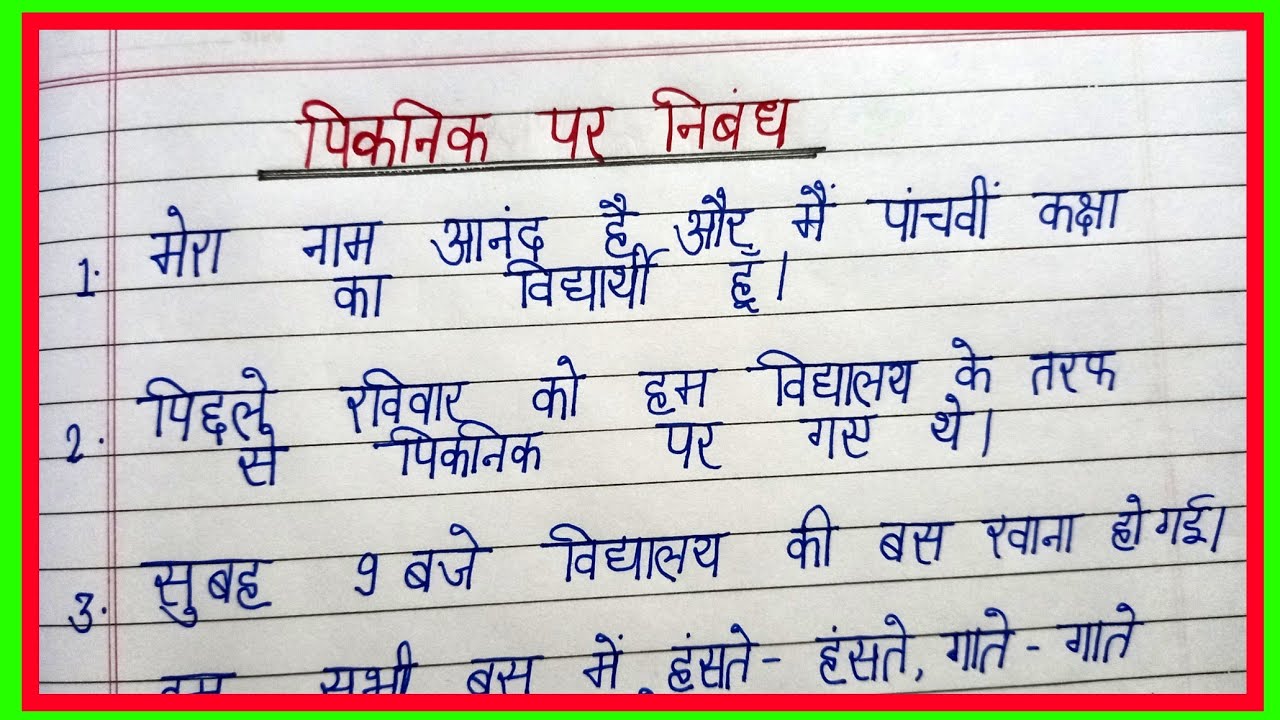 पिकनिक पर निबंध
1. मेरा नाम आनंद है और मैं पांचवीं कक्षा
का विद्यार्थी हूँ।
2. पिछले रविवार को हम विद्यालय के तरफ
से पिकनिक पर गए थे।
3. सुबह 9 बजे विद्यालय की बस रवाना हो गई।
सभी बस में हंसते - हंसते, गाते - गाते